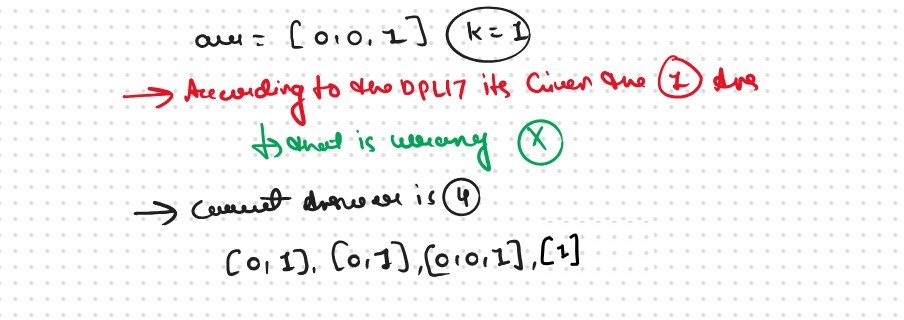 arr = [0,0,1] k=1
→ According to the DPL17 its Given the 1 Ans
↳ that is wrong X
→ Correct Answer is 4
[0,1], [0,1], [0,0,1], [1]